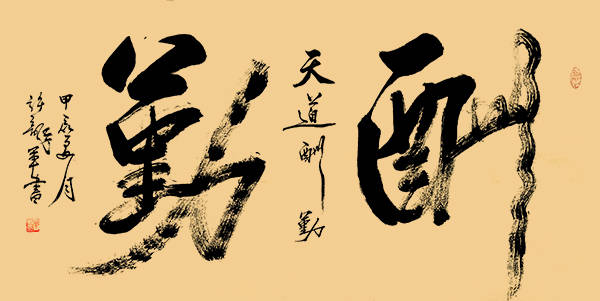 酬
天道酬勤
勤
甲辰夏月
許書